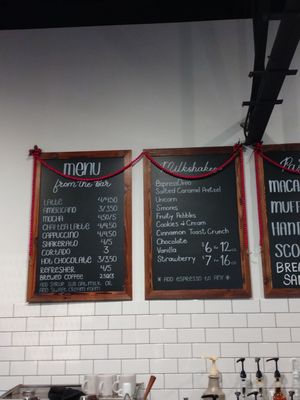 menu
from the bar
LATTE 4/4.50
AMERICANO 3/3.50
MOCHA 4.50/5
CHAI TEA LATTE 4/4.50
CAPPUCCINO 4/4.50
SHAKERATO 4/5
CORTADO 3
HOT CHOCOLATE 3/3.50
REFRESHER 4/5
BREWED COFFEE
ADD SYRUP
Milkshakes
Espresso Oreo
Salted Caramel Pretzel
Unicorn
Smores
Fruity Pebbles
Cookies & Cream
Cinnamon Toast Crunch
Chocolate
Vanilla $6 12oz
Strawberry $7 16oz
* ADD ESPRESSO TO ANY *
Pa
MACA
MUFF
HAND
SCO
BREA
SAN